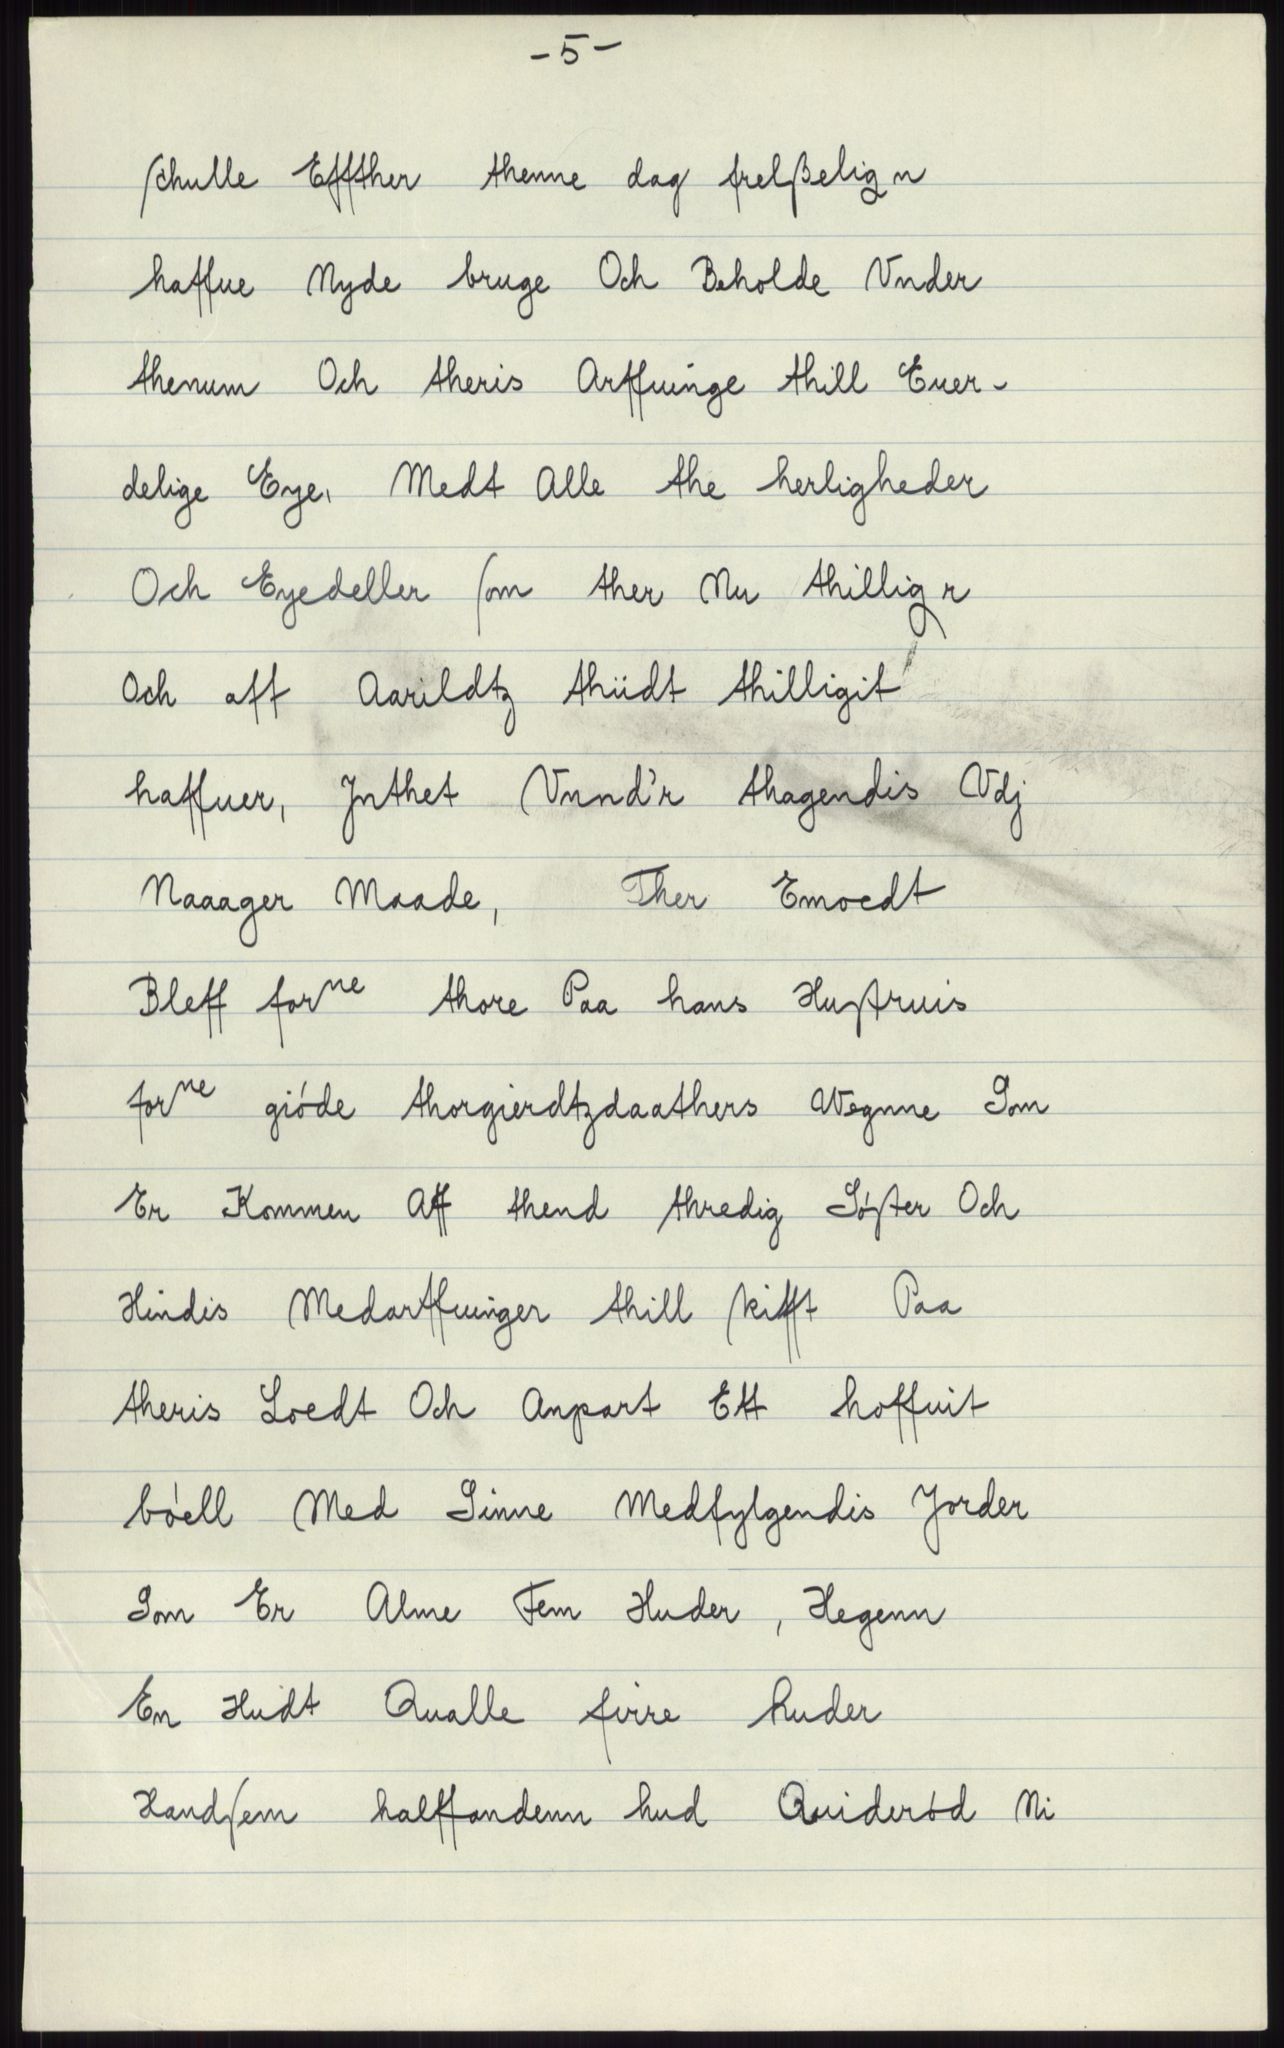 -5-
schulle Effther thenne dag frelßelig n
haffue Nyde bruge Och Beholde Vnder
thenum Och theris Arffuinge thill Euer-
delige Eye, Medt Alle the herligheder
Och Eyedeller som ther Nu thillig r
Och aff Aarildtz thiidt thilligit
haffuer, Jnthet Vnnd'r thagendis Vdj
Naaager Maade, Ther Emoedt
Bleff forne thore Paa hans Hustruis
forne gióde thorgierdtzdaathers Wegnne Som
Er Kommen Aff thend thredig Sóster Och
Hindis Medarffuinger thill skifft Paa
theris Loedt Och Anpart Ett hoffuit
bóell Med Sinne Medfylgendis Jorder
Som Er Alme Fem Huder, Hegenn
En Hudt Qualle firre huder
Handsem halffandenn hud Quideród Ni